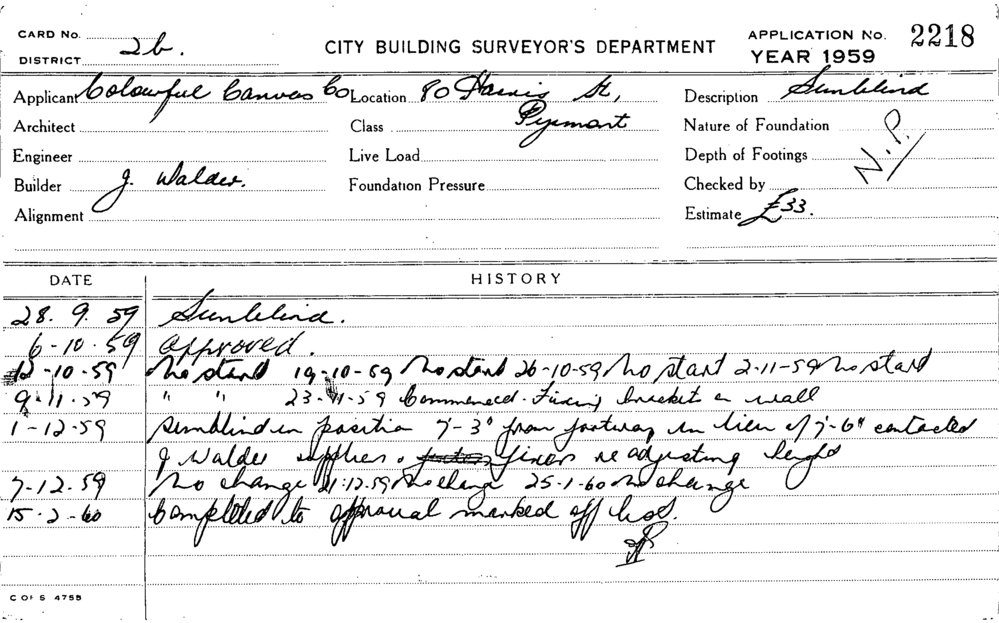 CARD No.
DISTRICT 2b.
CITY BUILDING SURVEYOR'S DEPARTMENT
APPLICATION No. 2218
YEAR 1959
Applicant Colourful Canvas Co Location 80 Harris St, Description Sunblind
Architect Class Pyrmont Nature of Foundation
Engineer Live Load Depth of Footings N.P.
Builder J. Walder. Foundation Pressure Checked by
Alignment Estimate £33.
DATE HISTORY
28. 9. 59 Sunblind.
6-10.59 approved.
12-10-59 No start 19-10-59 No start 26-10-59 No start 2-11-59 No start
9.11.59 " " 23-11-59 Commenced. Fixing bracket on wall
1-12-59 Sunblind in position 7'-3" from footway in lieu of 7'-6" contacted
J Walder suppliers & fixers re adjusting height
7-12.59 No change 21.12.59 No change 25-1-60 No change
15.2-60 Completed to approval marked off
C OF S 4755